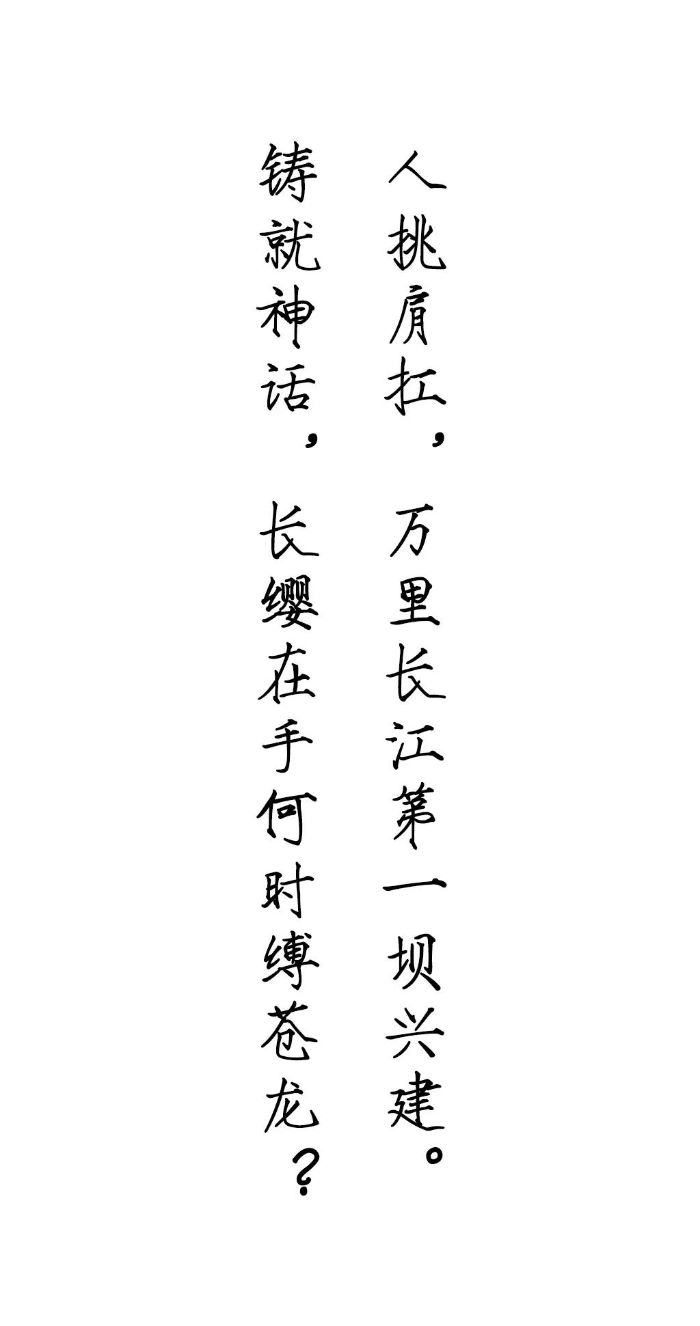 人挑肩扛，万里长江第一坝兴建。
铸就神话，长缨在手何时缚苍龙？